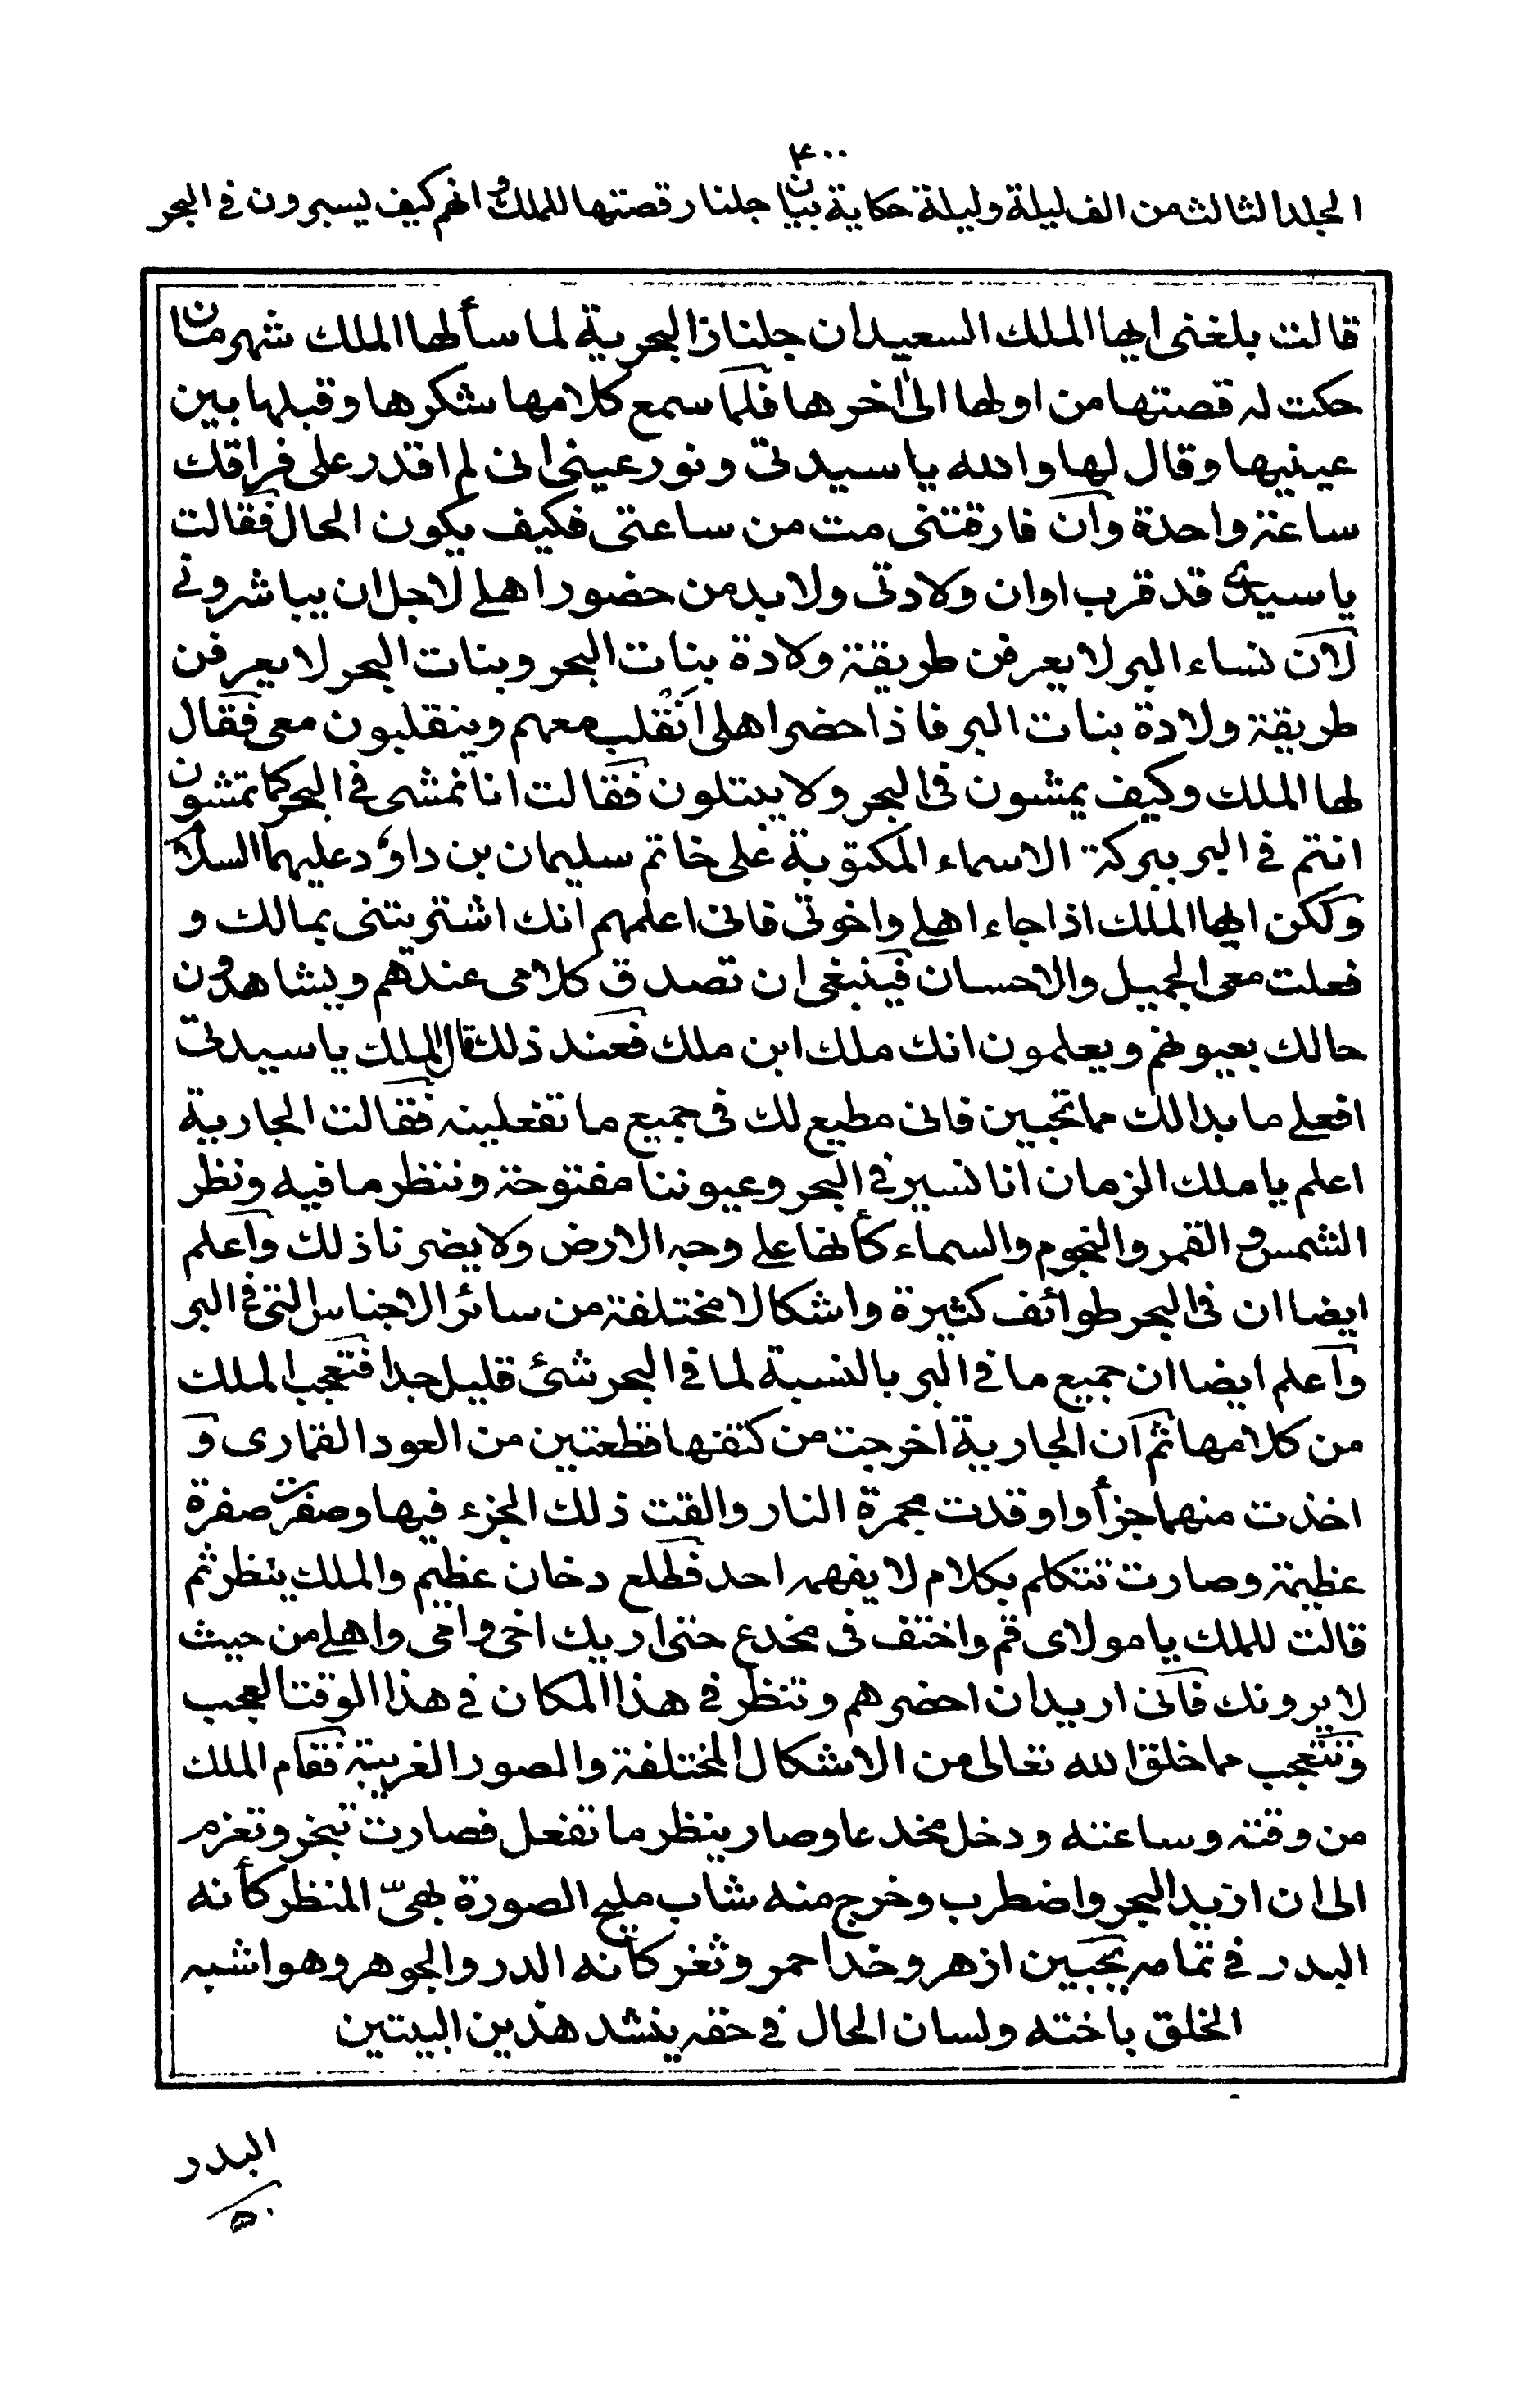 ۴۰۰
الجلد الثالث من الف ليلة وليلة حكاية بيان جلنار قصتها للملك وانهم كيف يسيرون في البحر
قالت بلغنى ايها الملك السعيد ان جلناز البحرية لما سألها الملك شهرمان
حكت له قصتها من اولها الى أخرها فلما سمع كلامها شكرها وقبلها بين
عينيها وقال لها والله يا سيدتى ونور عينى انى لم اقدر على فراقك
ساعة واحدة وان فارقتنى مت من ساعتى فكيف يكون الحال فقالت
يا سيدى قد قرب اوان ولادتى ولا بد من حضور اهلى لاجل ان يباشرونى
لان نساء البر لا يعرفن طريقة ولادة بنات البحر وبنات البحر لا يعرفن
طريقة ولادة بنات البر فاذا حضر اهلى انقلب معهم وينقلبون معى فقال
لها الملك وكيف يمشون فى البحر ولا يبتلون فقالت انا نمشى فى البحر كما تمشون
انتم فى البر ببركة الاسماء المكتوبة على خاتم سليمان بن داؤد عليهما السلام
ولكن ايها الملك اذا جاء اهلى واخوتى فانى اعلمهم انك اشتريتنى بمالك و
فعلت معى الجميل والاحسان فينبغى ان تصدق كلامى عندهم ويشاهدون
حالك بعيونهم ويعلمون انك ملك ابن ملك فعند ذلك قال الملك يا سيدتى
افعلى ما بدا لك مما تحبين فانى مطيع لك فى جميع ما تفعلينه فقالت الجارية
اعلم يا ملك الزمان انا نسير فى البحر وعيوننا مفتوحة وننظر ما فيه وننظر
الشمس والقمر والنجوم والسماء كأنها على وجه الارض ولا يضرنا ذلك واعلم
ايضا ان فى البحر طوائف كثيرة واشكالا مختلفة من سائر الاجناس التى فى البر
واعلم ايضا ان جميع ما فى البر بالنسبة لما فى البحر شئ قليل جدا فتعجب الملك
من كلامها ثم ان الجارية اخرجت من كتفها قطعتين من العود القمارى و
اخذت منهما جزأ واوقدت مجمرة النار والقت ذلك الجزء فيها وصفرت صفرة
عظيمة وصارت تتكلم بكلام لا يفهمه احد فطلع دخان عظيم والملك ينظر ثم
قالت للملك يا مولاى قم واختف فى مخدع حتى اريك اخى وامى واهلى من حيث
لا يرونك فانى اريد ان احضرهم وتنظر فى هذا المكان فى هذا الوقت العجب
وتتعجب مما خلق الله تعالى من الاشكال المختلفة والصور الغريبة فقام الملك
من وقته وساعته ودخل مخدعا وصار ينظر ما تفعل فصارت تبخر وتعزم
الى ان ازبد البحر واضطرب وخرج منه شاب مليح الصورة بهىّ المنظر كأنه
البدر فى تمامه بجبين ازهر وخد احمر وثغر كأنه الدر والجوهر وهو اشبه
الخلق باخته ولسان الحال فى حقه ينشد هذين البيتين
البدر